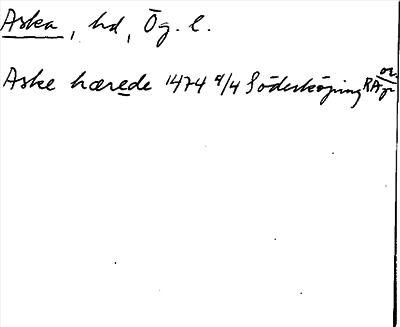 Aska, hd, Ög. l.
Aske hærede 1474 4/4 Söderköping RA or. p